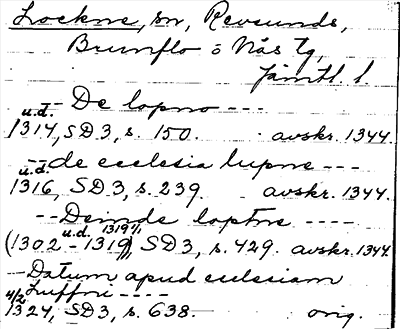 Lockne, sn, Revsunds,
Brunflo o Näs tg,
Jämtl. l.
-- De lopno ---
u.d.
1314, SD 3, s. 150. avskr. 1344.
-- de ecclesia lupne ---
u.d.
1316, SD 3, s. 239. avskr. 1344.
-- Deinde ----
u.d. 1319 1/1
(1302 - 1319), SD 3, s. 429. avskr. 1344.
-- Datum apud ecclesiam
4/2 ----
1324, SD 3, s. 638. orig.